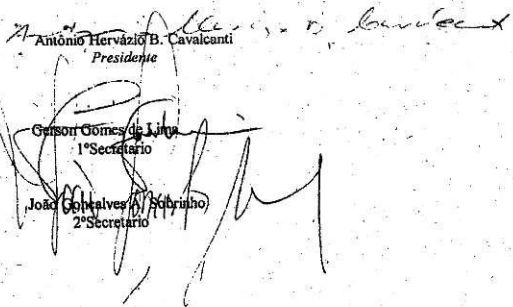 Antônio Hervázio B. Cavalcanti
Presidente
Gerson Gomes de Lima
1ºSecretario
João Gonçalves A. Sobrinho
2ºSecretario